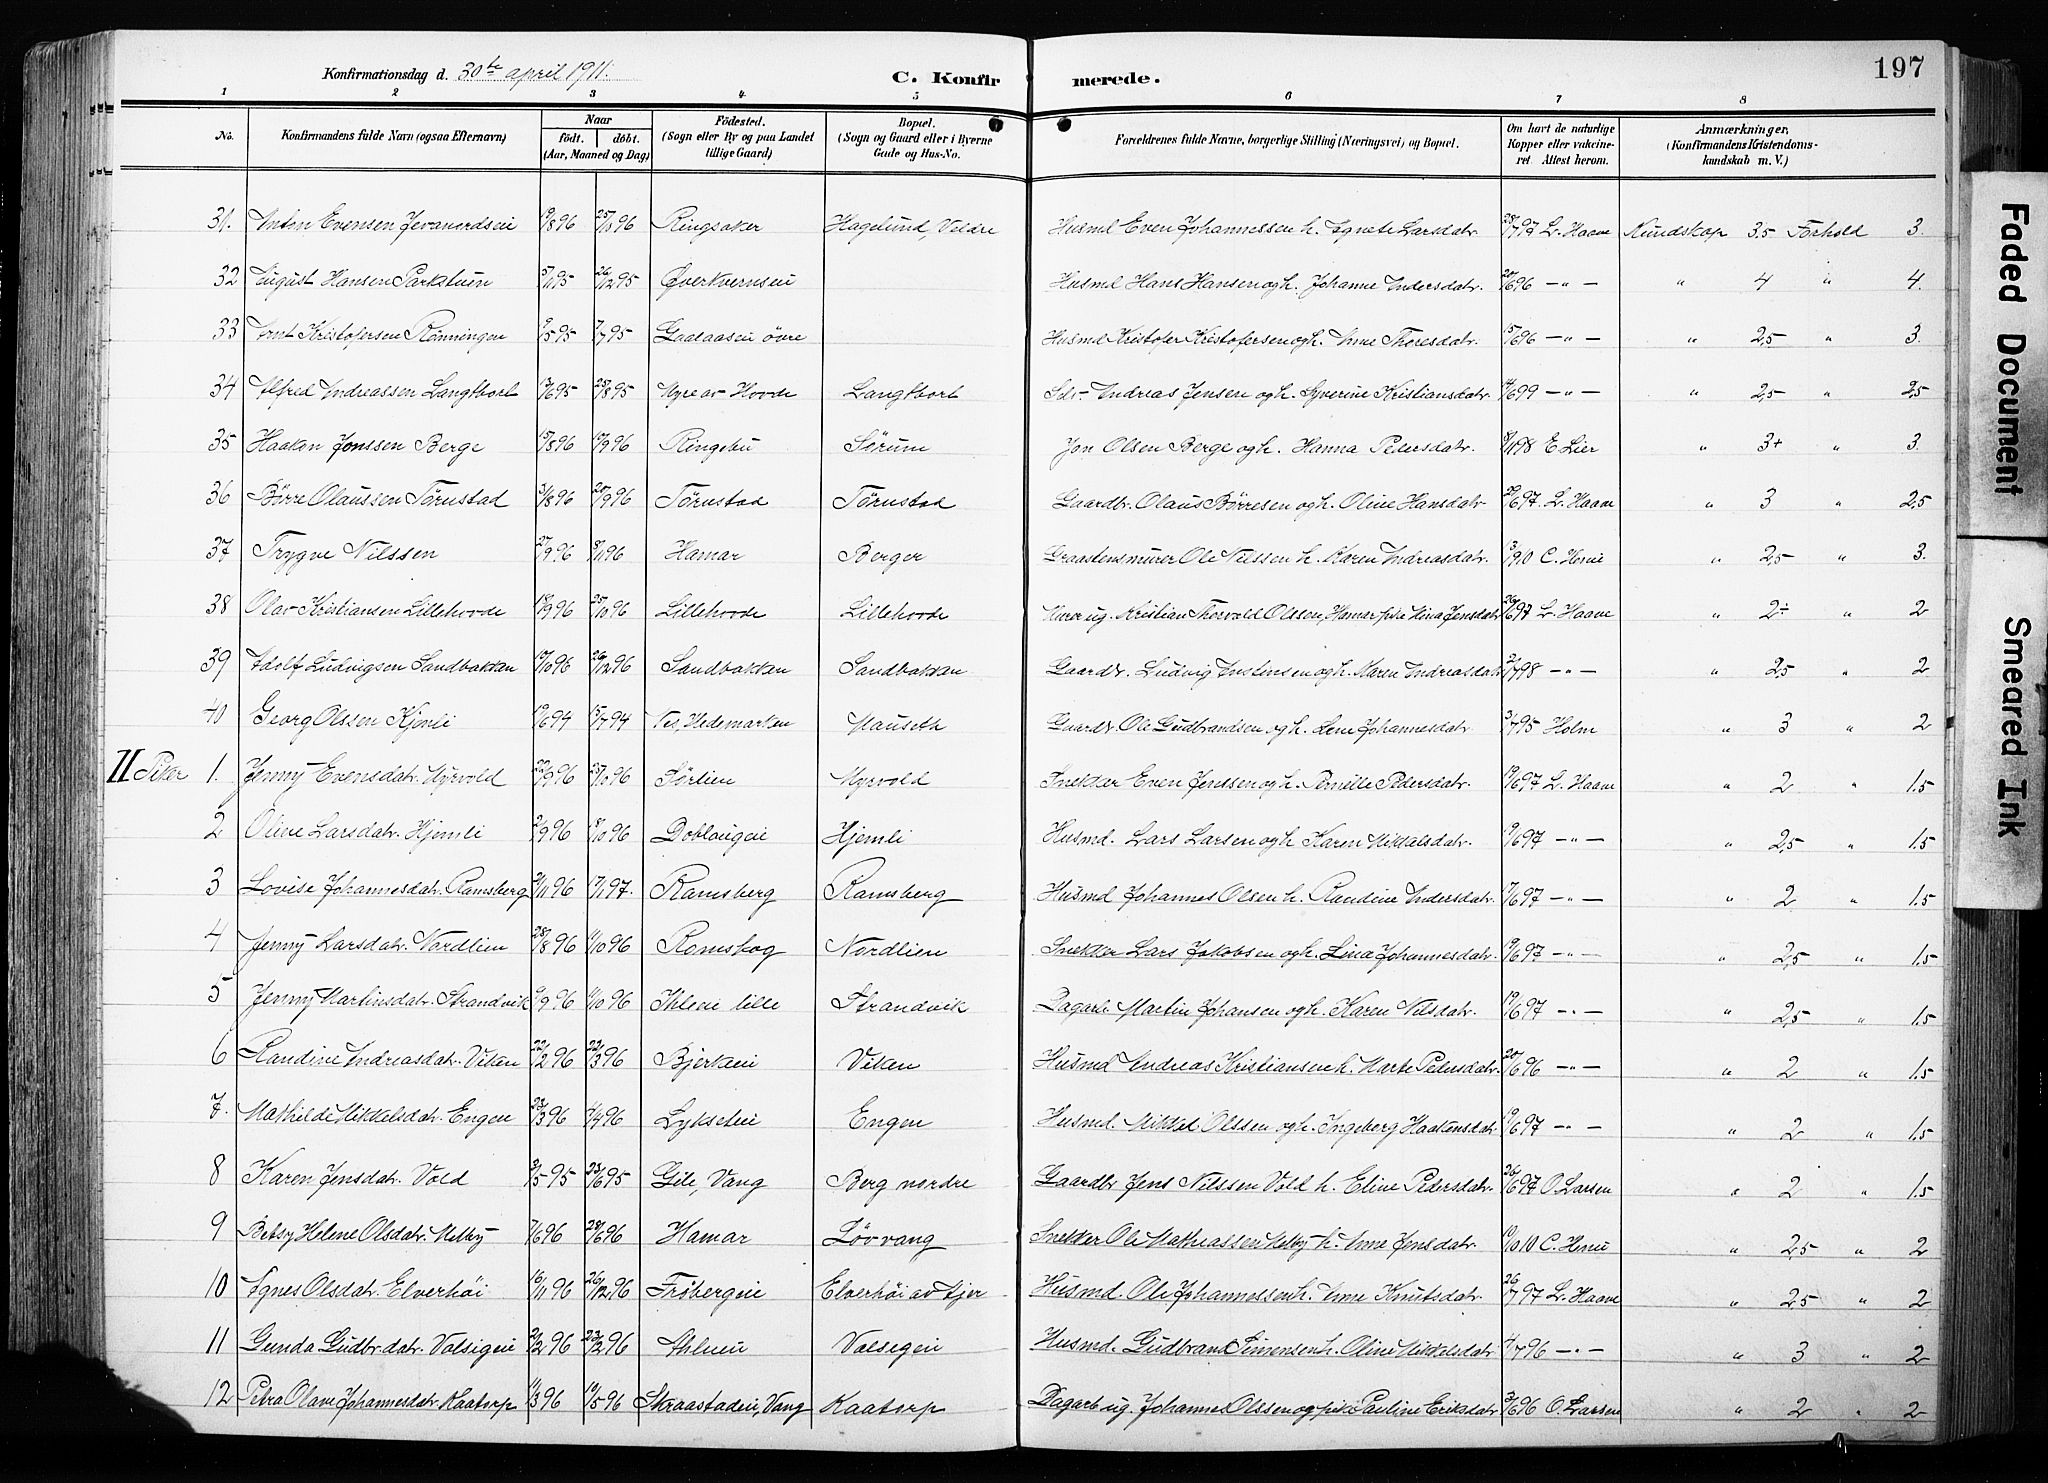 197
Konfirmationsdag d. 30te april 1911.
C. Konfirmerede.
1 2 3 4 5 6 7 8
No. Konfirmandens fulde Navn (ogsaa Efternavn) Naar født. døbt. (Aar, Maaned og Dag) Fødested. (Sogn eller By og paa Landet tillige Gaard) Bopæl. (Sogn og Gaard eller i Byerne Gade og Hus-No. Forældrenes fulde Navne, borgerlige Stilling (Næringsvei) og Bopæl. Om havt de naturlige Kopper eller vakcineret Attest herom. Anmærkninger, (Konfirmandens Kristendomskundskab m. V.)
31. Anton Evensen 19/8 96 25/10 96 Ringsaker Hagelund, Veldre Husmd Even Johannessen h. Agnete Larsdatr. 28/7 97 L. Haave Kundskap 3.5 Forhold 3.
32 August Hansen Parkstuen 5/11 95 26/12 95 Øverkvernsei Husmd Hans Hansen og h. Johanne Andersdatr. 20/6 96 —"— " 4 " 4.
33 Arnt Kristofersen Rønningen 9/5 95 7/7 95 Gaalaasei øvre Husmd Kristofer Kristofersen og h. Anne Thoresdatr. 15/6 96 —"— " 2,5 " 3.
34 Alfred Andreassen Langtbort 13/6 95 25/8 95 Myre av Hovde Langtbort Selv. Andreas Jensen og h. Syverine Kristiansdatr. 14/6 99 —"— " 2,5 " 2,5
35 Haakon Jonssen Berge 15/8 96 19/9 96 Ringebu Sørum Jon Olsen Berge og h. Hanna Pedersdatr. 8/11 98 E. Lier " 3+ " 3.
36 Børre Olaussen Tørnstad 31/8 96 20/9 96 Tørnstad Tørnstad Gaardbr. Olaus Børresen og h. Oline Hansdatr 29/6 97. L. Haave " 3 " 2,5
37 Trygve Nilssen 27/9 96 8/11 96 Hamar Berger Graastensmurer Ole Nilssen h. Karen Andreasdatr. 13/9 10 C. Henie " 2,5 " 3.
38 Olav Kristiansen Lillehovde 18/9 96 25/10 96 Lillehovde Lillehovde Murer ug. Kristian Thorvald Olssen, Hamar pike Mina Jensdatr 26/6 97 L. Haave " 2÷ " 2
39 Adolf Ludvigsen Sandbakken 10/10 96 26/12 96 Sandbakken Sandbakken Gaardbr. Ludvig Enstinsen og h. Karen Andreasdatr 2/7 98 —"— " 2,5 " 2
40 Georg Olssen Kjemli 19/6 94 15/7 94 Nes, Hedemarken Mauseth Gaardbr. Ole Gudbrandsen og h. Lene Johannesdatr. 3/7 95 Holm " 3 " 2
II Piker 1. Jenny Evensdatr. Myrvold 22/9 96 25/10 96 Sørlien Myrvold Snekker Even Jenssen og h. Pernille Pedersdatr. 19/6 97 L. Haave " 2 " 1.5
2 Oline Larsdatr. Hjemli 2/9 96 18/10 96 Doblougeie Hjemli Husmd. Lars Larsen og h. Karen Mikkelsdatr. 19/6 97 —"— " 2,5 " 1.5
3 Lovise Johannesdatr. Ramsberg 21/11 96 17/1 97. Ramsberg Ramsberg Husmd Johannes Olsen h. Randine Andersdatr. 17/6 97 —"— " 2 " 1.5
4 Jenny Larsdatr. Nordlien 28/8 96 11/10 96 Romskog Nordlien Snekker Lars Jakobsen og h. Lina Johannesdatr. 19/6 97 —"— " 2,5 " 1.5
5 Jenny Martinsdatr. Strandvik 9/9 96 11/10 96 Ihleie lille Strandvik Dagarb. Martin Johansen og h. Karen Nilsdatr. 19/6 97 —"— " 2,5 " 1.5
6 Randine Andreasdatr. Viken 22/2 96 22/3 96 Bjerkeie Viken Husmd Andreas Kristiansen h. Marte Pedersdatr. 20/6 96 —"— " 2 " 1.5
7. Mathilde Mikkelsdatr. Engen 23/3 96 4/4 96 Lykseteie Engen Husmd. Mikkel Olssen og h. Ingeborg Haakensdatr 19/6 97 —"— " 2 " 1.5
8 Karen Jensdatr. Vold 3/5 95 23/6 95 Gile, Vang Berg nordre Gaardbr Jens Nilssen Vold h. Eline Pedersdatr. 26/6 97 O. Larsen " 2 " 1.5
9 Betsy Helene Olsdatr. Melby 7/6 96 28/6 96 Hamar Løvvang Snekker Ole Mathiassen Melby h. Anne Jensdatr. 19/10 10 C. Henie " 2,5 " 2
10 Agnes Olsdatr. Elverhøi 16/11 96 26/12 96 Frøbergeie Elverhøi av Kjer Husmd. Ole Johannessen h. Anne Knutsdatr. 26/7 97 L. Haave " 25 " 2
11 Gunda Gudbr.datr. Valsigeie 2/2 96 23/2 96 Ihleeie Valsigeie Husmd. Gudbrand Simensen h. Oline Mikkelsdatr 4/7 96 —"— " 3 " 2
12 Petra Olave Johannesdatr. Kaatorp 11/3 96 19/5 96 Skraastadeie, Vang Kaatorp Dagarb ug. Johannes Olssen og pike Pauline Eriksdatr 3/6 96 O. Larsen " 2 " 2
Faded Document
Smeared Ink